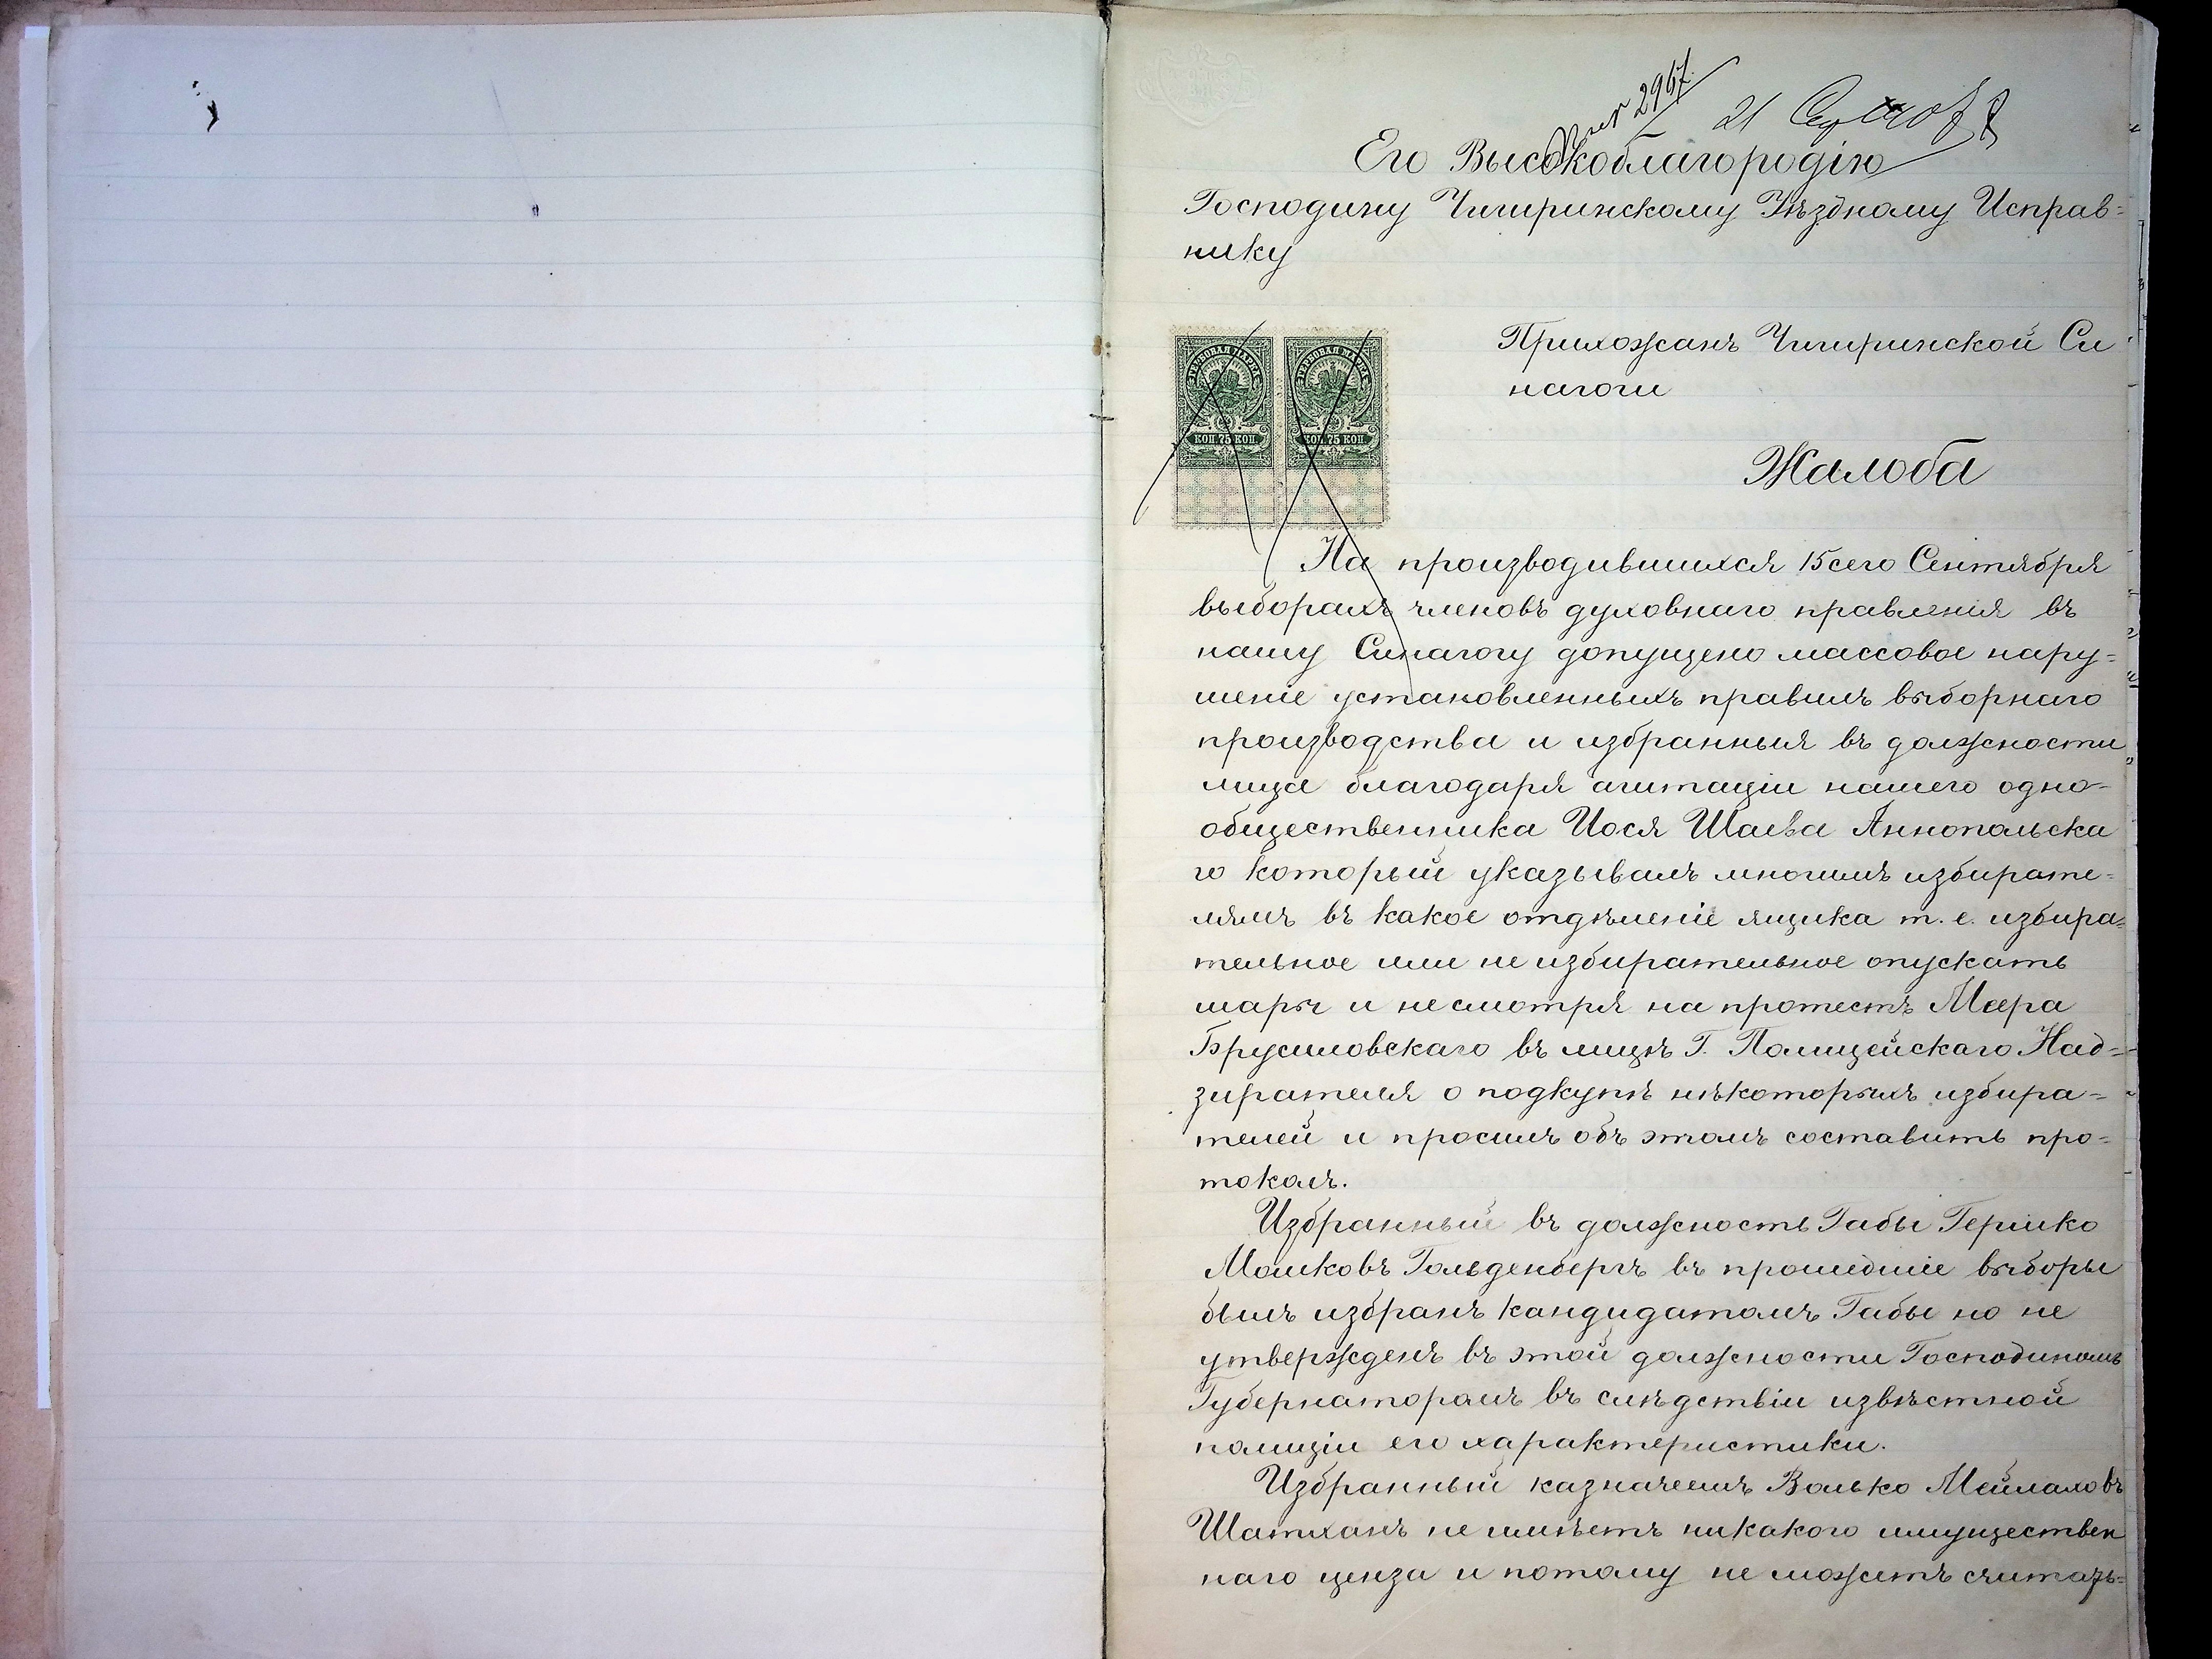 № 2967
21 Сент 1907 г
Его Высокоблагородію
Господину Чигиринскому Уѣздному Исправ=
нику
Прихожанъ Чигиринской Си
нагоги
ГЕРБОВАЯ МАРКА
КОП. 75 КОП.
ГЕРБОВАЯ МАРКА
КОП. 75 КОП.
Жалоба
На производившихся 15 сего Сентября
выборахъ членовъ духовнаго правленія въ
нашу Синагогу допущено массовое нару=
шеніе установленныхъ правилъ выборнаго
производства и избранныя въ должности
лица благодаря агитаціи нашего одно-
общественника Іося Шаева Аннопольска
го который указывалъ многимъ избирате=
лямъ въ какое отдѣленіе ящика т. е. избира=
тельное или не избирательное опускать
шары и несмотря на протестъ Меера
Брусиловскаго въ лицѣ Г. Полицейскаго Над=
зирателя о подкупѣ нѣкоторыхъ избира=
телей и просилъ объ этомъ составить про=
токолъ.
Избранный въ должность Габы Гершко
Мошковъ Гольденбергъ въ прошедшіе выборы
былъ избранъ кандидатомъ Габы но не
утвержденъ въ этой должности Господиномъ
Губернаторомъ въ слѣдствіи извѣстной
полиціи его характеристики.
Избранный казначеемъ Волько Мейлаховъ
Шатханъ не имѣетъ никакого имуществен
наго ценза и потому не можетъ считать=